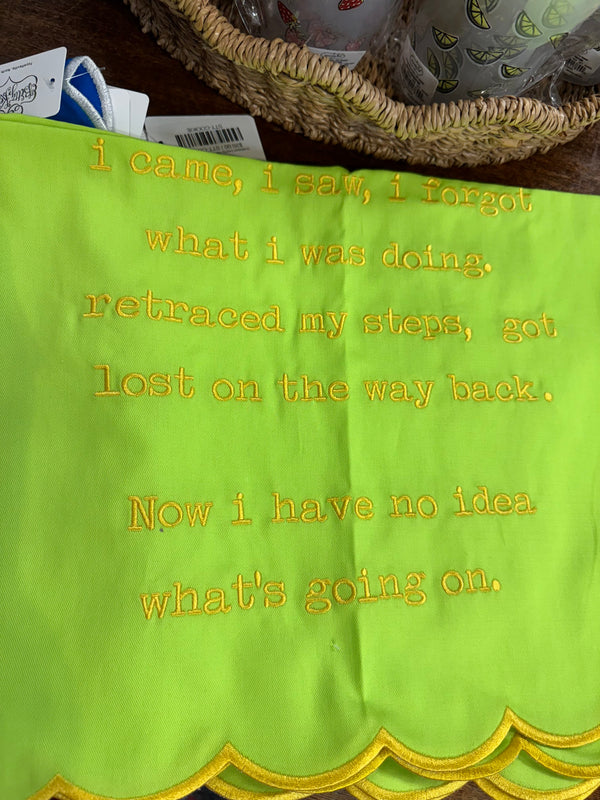 i came, i saw, i forgot
what i was doing.
retraced my steps, got
lost on the way back.
Now i have no idea
what's going on.